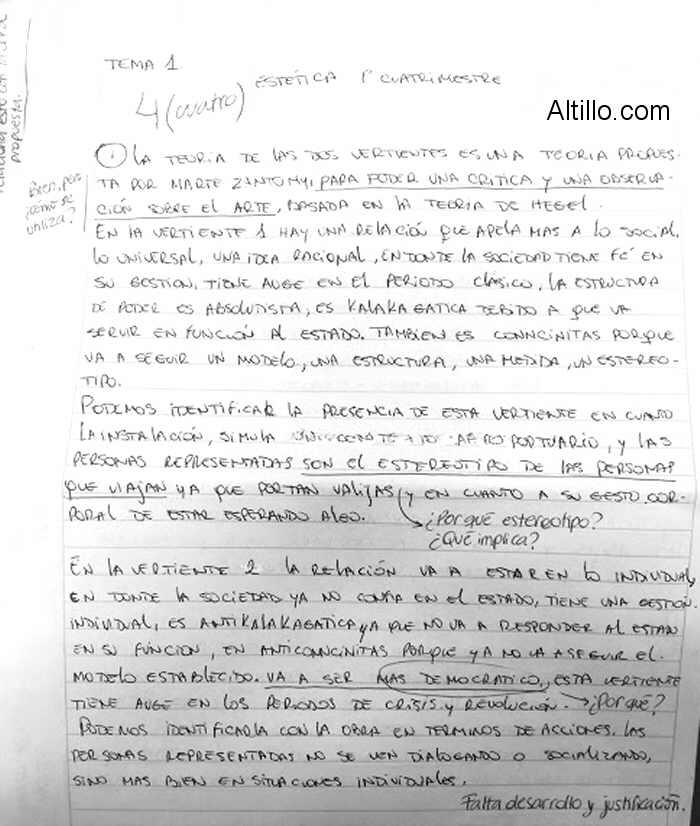 TEMA 1
ESTÉTICA 1° CUATRIMESTRE
4 (cuatro)
Altillo.com
relaciona este con
propuesta.
① LA TEORIA DE LAS DOS VERTIENTES ES UNA TEORIA PROPUES-
Bien, pero
¿cómo se
utiliza?
TA POR MARTE ZATONYI, PARA PODER UNA CRITICA Y UNA OBSERVA-
CIÓN SOBRE EL ARTE, BASADA EN LA TEORIA DE HEGEL.
EN LA VERTIENTE 1 HAY UNA RELACIÓN QUE APELA MAS A LO SOCIAL,
LO UNIVERSAL, UNA IDEA RACIONAL, EN DONDE LA SOCIEDAD TIENE FÉ EN
SU GESTION, TIENE AUGE EN EL PERIODO CLASICO, LA ESTRUCTURA
DE PODER ES ABSOLUTISTA, ES KALAKAGATICA DEBIDO A QUE VA
SERVIR EN FUNCIÓN AL ESTADO. TAMBIEN ES CONNCINITAS PORQUE
VA A SEGUIR UN MODELO, UNA ESTRUCTURA, UNA MEDIDA, UN ESTEREO-
TIPO.
PODEMOS IDENTIFICAR LA PRESENCIA DE ESTA VERTIENTE EN CUANTO
LA INSTALACIÓN, SIMULA AEROPORTUARIO, Y LAS
PERSONAS REPRESENTADAS SON EL ESTEREOTIPO DE LAS PERSONAS
QUE VIAJAN YA QUE PORTAN VALIJAS, Y EN CUANTO A SU GESTO COR-
PORAL DE ESTAR ESPERANDO ALGO.
¿Por qué estereotipo?
¿Qué implica?
EN LA VERTIENTE 2 LA RELACIÓN VA A ESTAR EN LO INDIVIDUAL,
EN DONDE LA SOCIEDAD YA NO CONFIA EN EL ESTADO, TIENE UNA GESTION
INDIVIDUAL, ES ANTIKALAKAGATICA YA QUE NO VA A RESPONDER AL ESTADO
EN SU FUNCION, EN ANTICONNCINITAS PORQUE YA NO VA A SEGUIR EL
MODELO ESTABLECIDO. VA A SER MAS DEMOCRATICO, ESTA VERTIENTE
TIENE AUGE EN LOS PERIODOS DE CRISIS Y REVOLUCIÓN. ¿Por qué?
PODEMOS IDENTIFICARLA CON LA OBRA EN TERMINOS DE ACCIONES. LAS
PERSONAS REPRESENTADAS NO SE VEN DIALOGANDO O SOCIALIZANDO,
SINO MAS BIEN EN SITUACIONES INDIVIDUALES.
Falta desarrollo y justificación.